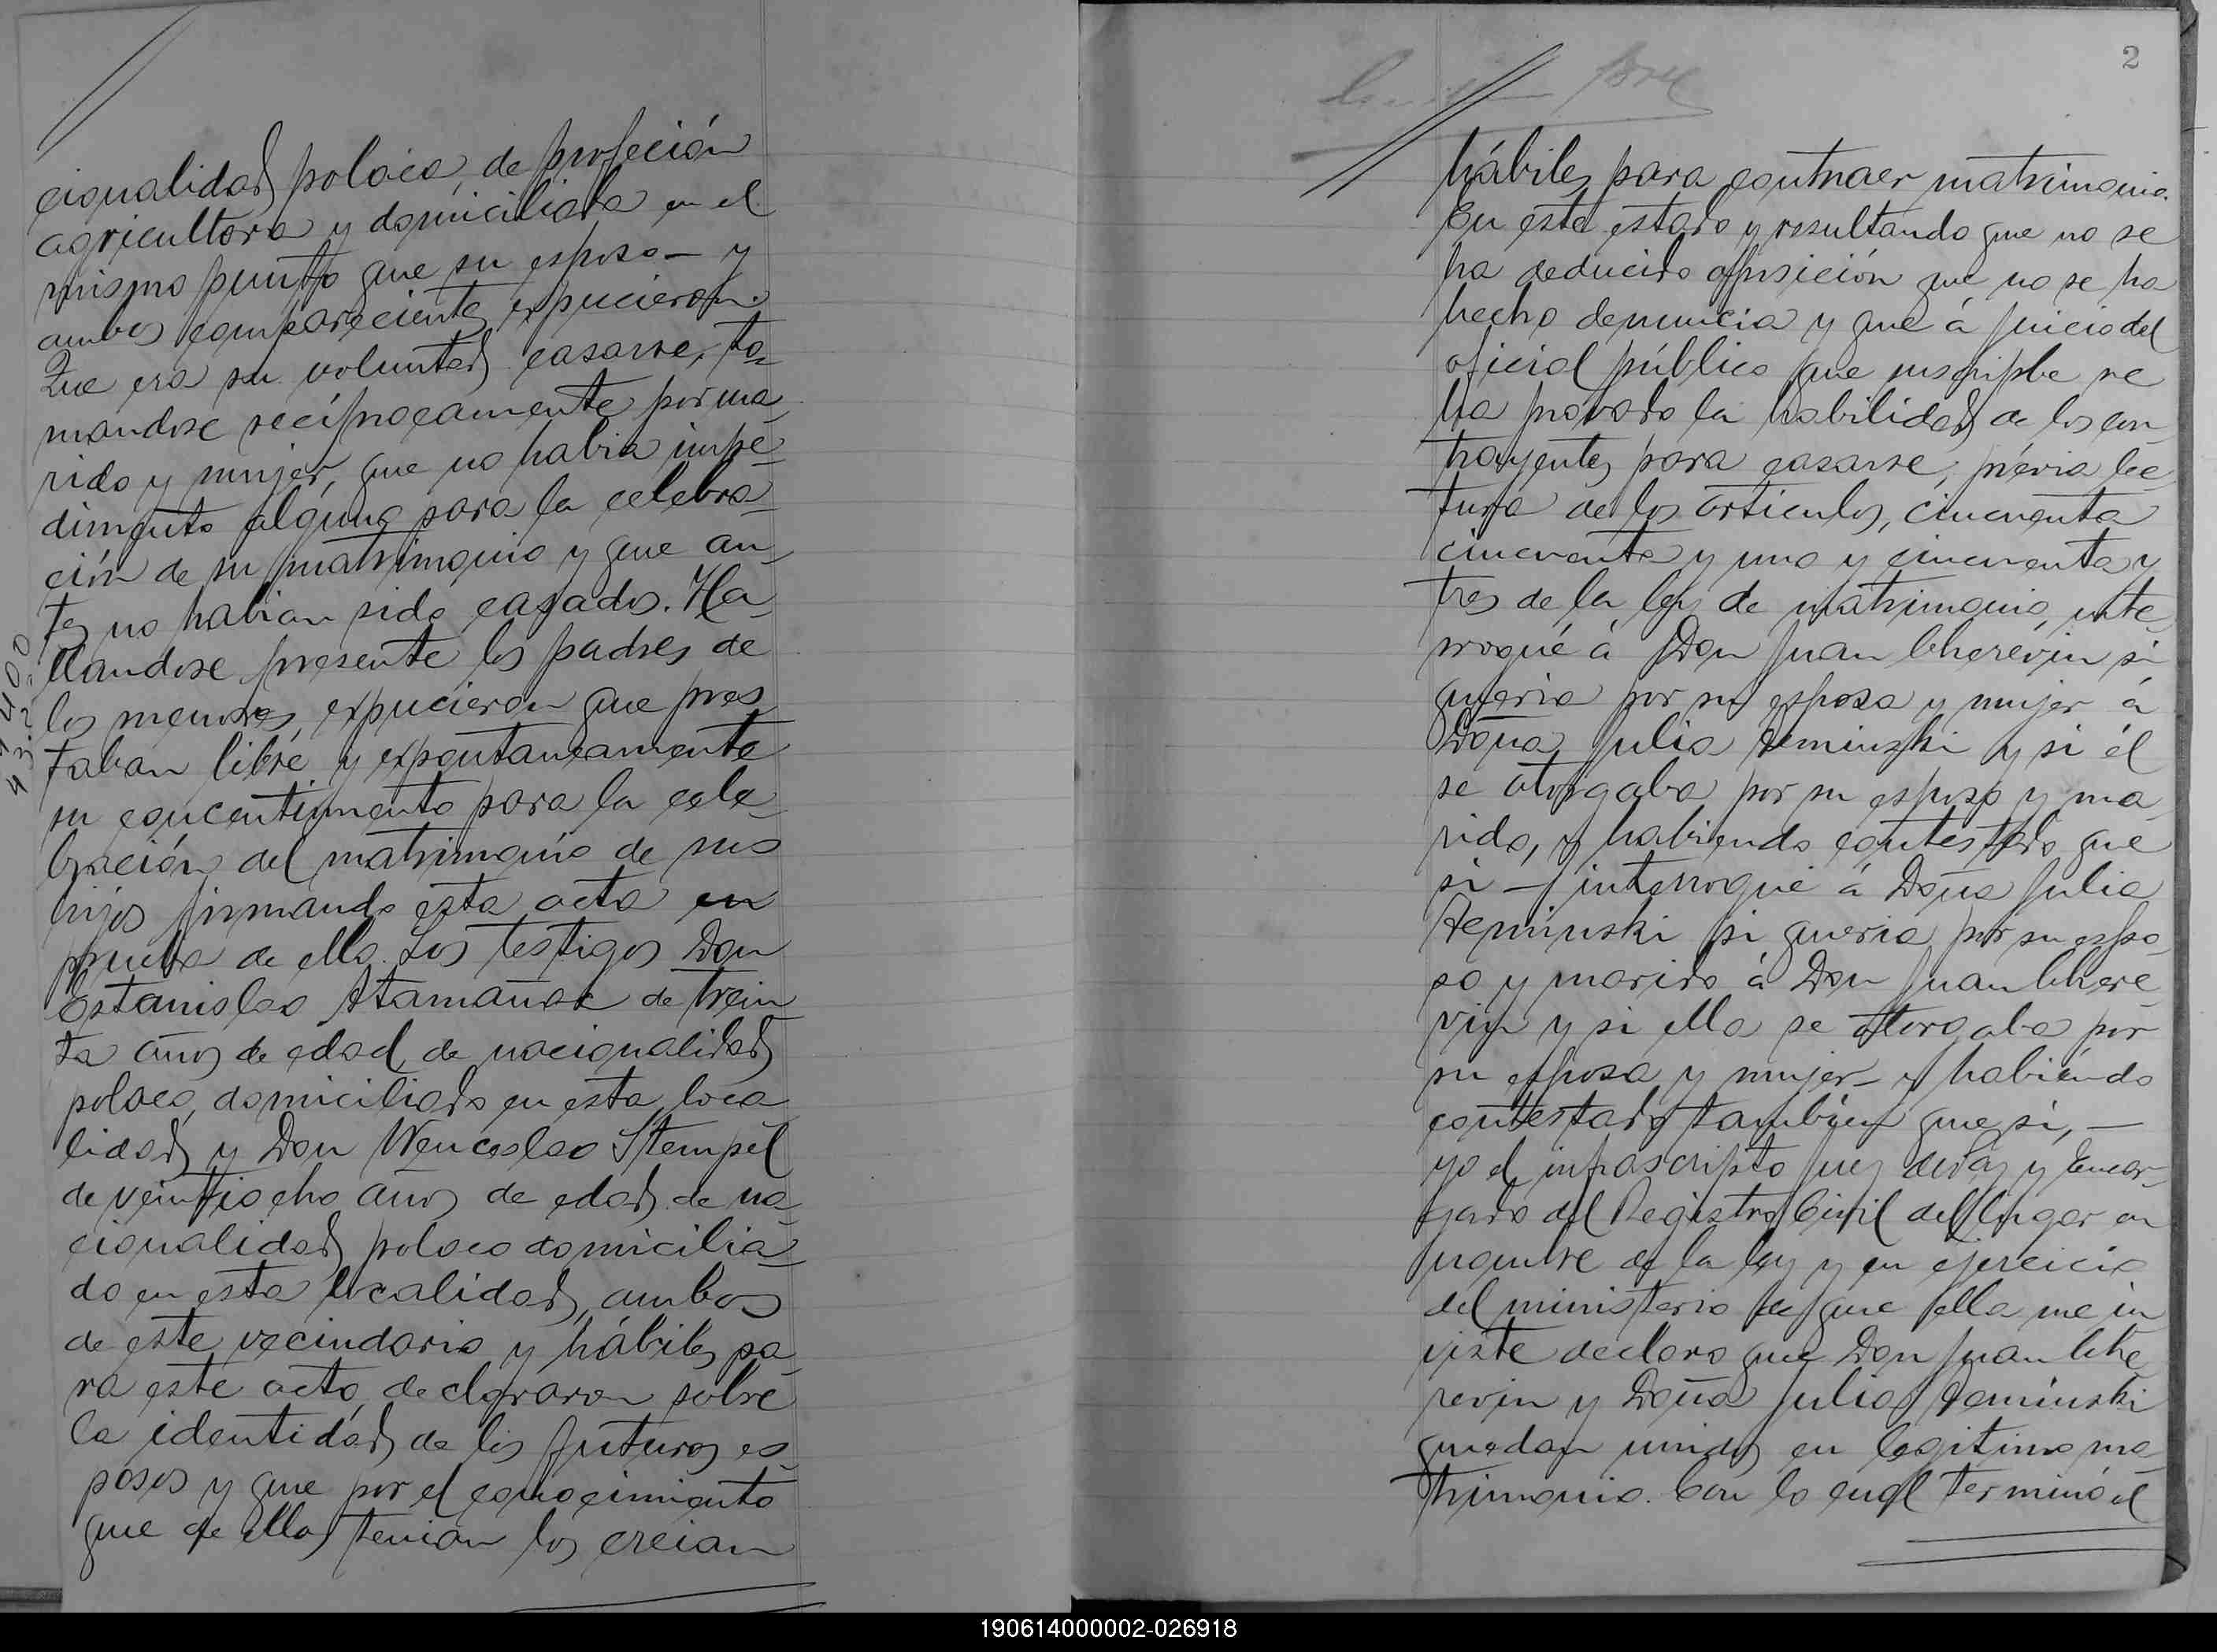 cionalidad polaca, de profeción
agricultora y domiciliada en el
mismo punto que su esposo — y
ambos compareciente, expucieron.
Que era su voluntad casarse, to=
mandose recíprocamente por ma
rido y mujer, que no habia impe=
dimento alguno para la celebra=
ción de su matrimonio y que an
tes no habian sido casados. Ha
llandose presente los padres de
los menores, expucieron que pres
taban libre y expontaneamente
su concentimento para la cele=
bración del matrimonio de sus
hijos firmando esta acta en
prueba de ello. Los testigos Don
Estanislao Atamañac de trein
ta años de edad, de nacionalidad
polaca, domiciliado en esta loca
lidad y Don Wenceslao Stempel
de veintiocho años de edad de na=
cionalidad polaca domicilia=
do en esta localidad, ambos
de este vecindario y hábiles pa=
ra este acto, declararon sobre
la identidad de los futuros es=
posos y que por el conocimiento
que de ellos tenian los creian
2
hábiles para contraer matrimonio.
En este estado y resultando que no se
ha deducido oposición que no se ha
hecho denuncia y que á juicio del
oficial público que inscribe se
ha provado la habilidad de los con
trayentes para casarse, prévia lec
tura de los articulos, cincuenta
cincuenta y uno y cincuenta y
tres de la ley de matrimonio, inte
rrogué á Don Juan Cherevin si
queria por su esposa y mujer á
Doña Julia Deminski y si él
se otorgaba por su esposo y ma
rido, y habiendo contestado que
si — interrogué á Doña Julia
Deminski si queria por su espo
so y marido á Don Juan Chere
vin y si ella se otorgaba por
su esposa y mujer — y habiendo
contestado tambien que si, —
yo el infrascripto Juez de Paz y Encar
gado del Registro Civil del lugar en
nombre de la ley y en ejercicio
del ministerio de que ella me in
viste declaro que Don Juan Che
revin y Doña Julia Deminski
quedan unidos en legitimo ma
trimonio. Con lo cual terminó el
190614000002-026918